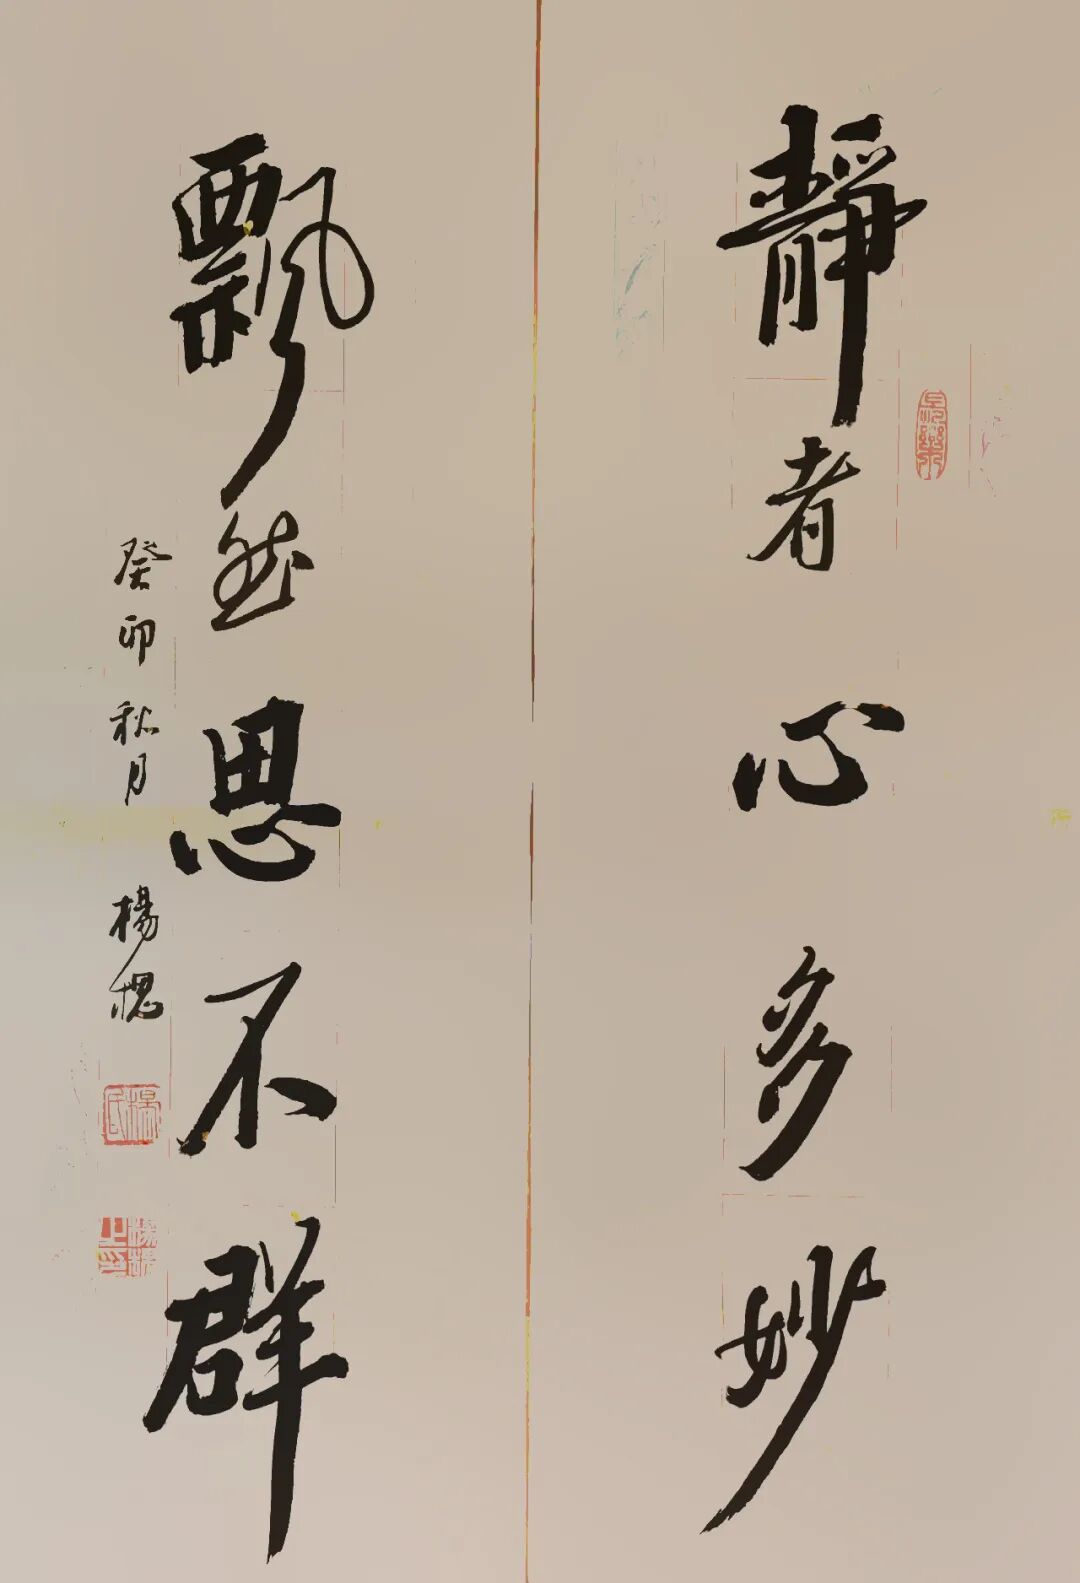 靜者心多妙
飄然思不群
癸卯秋月 楊